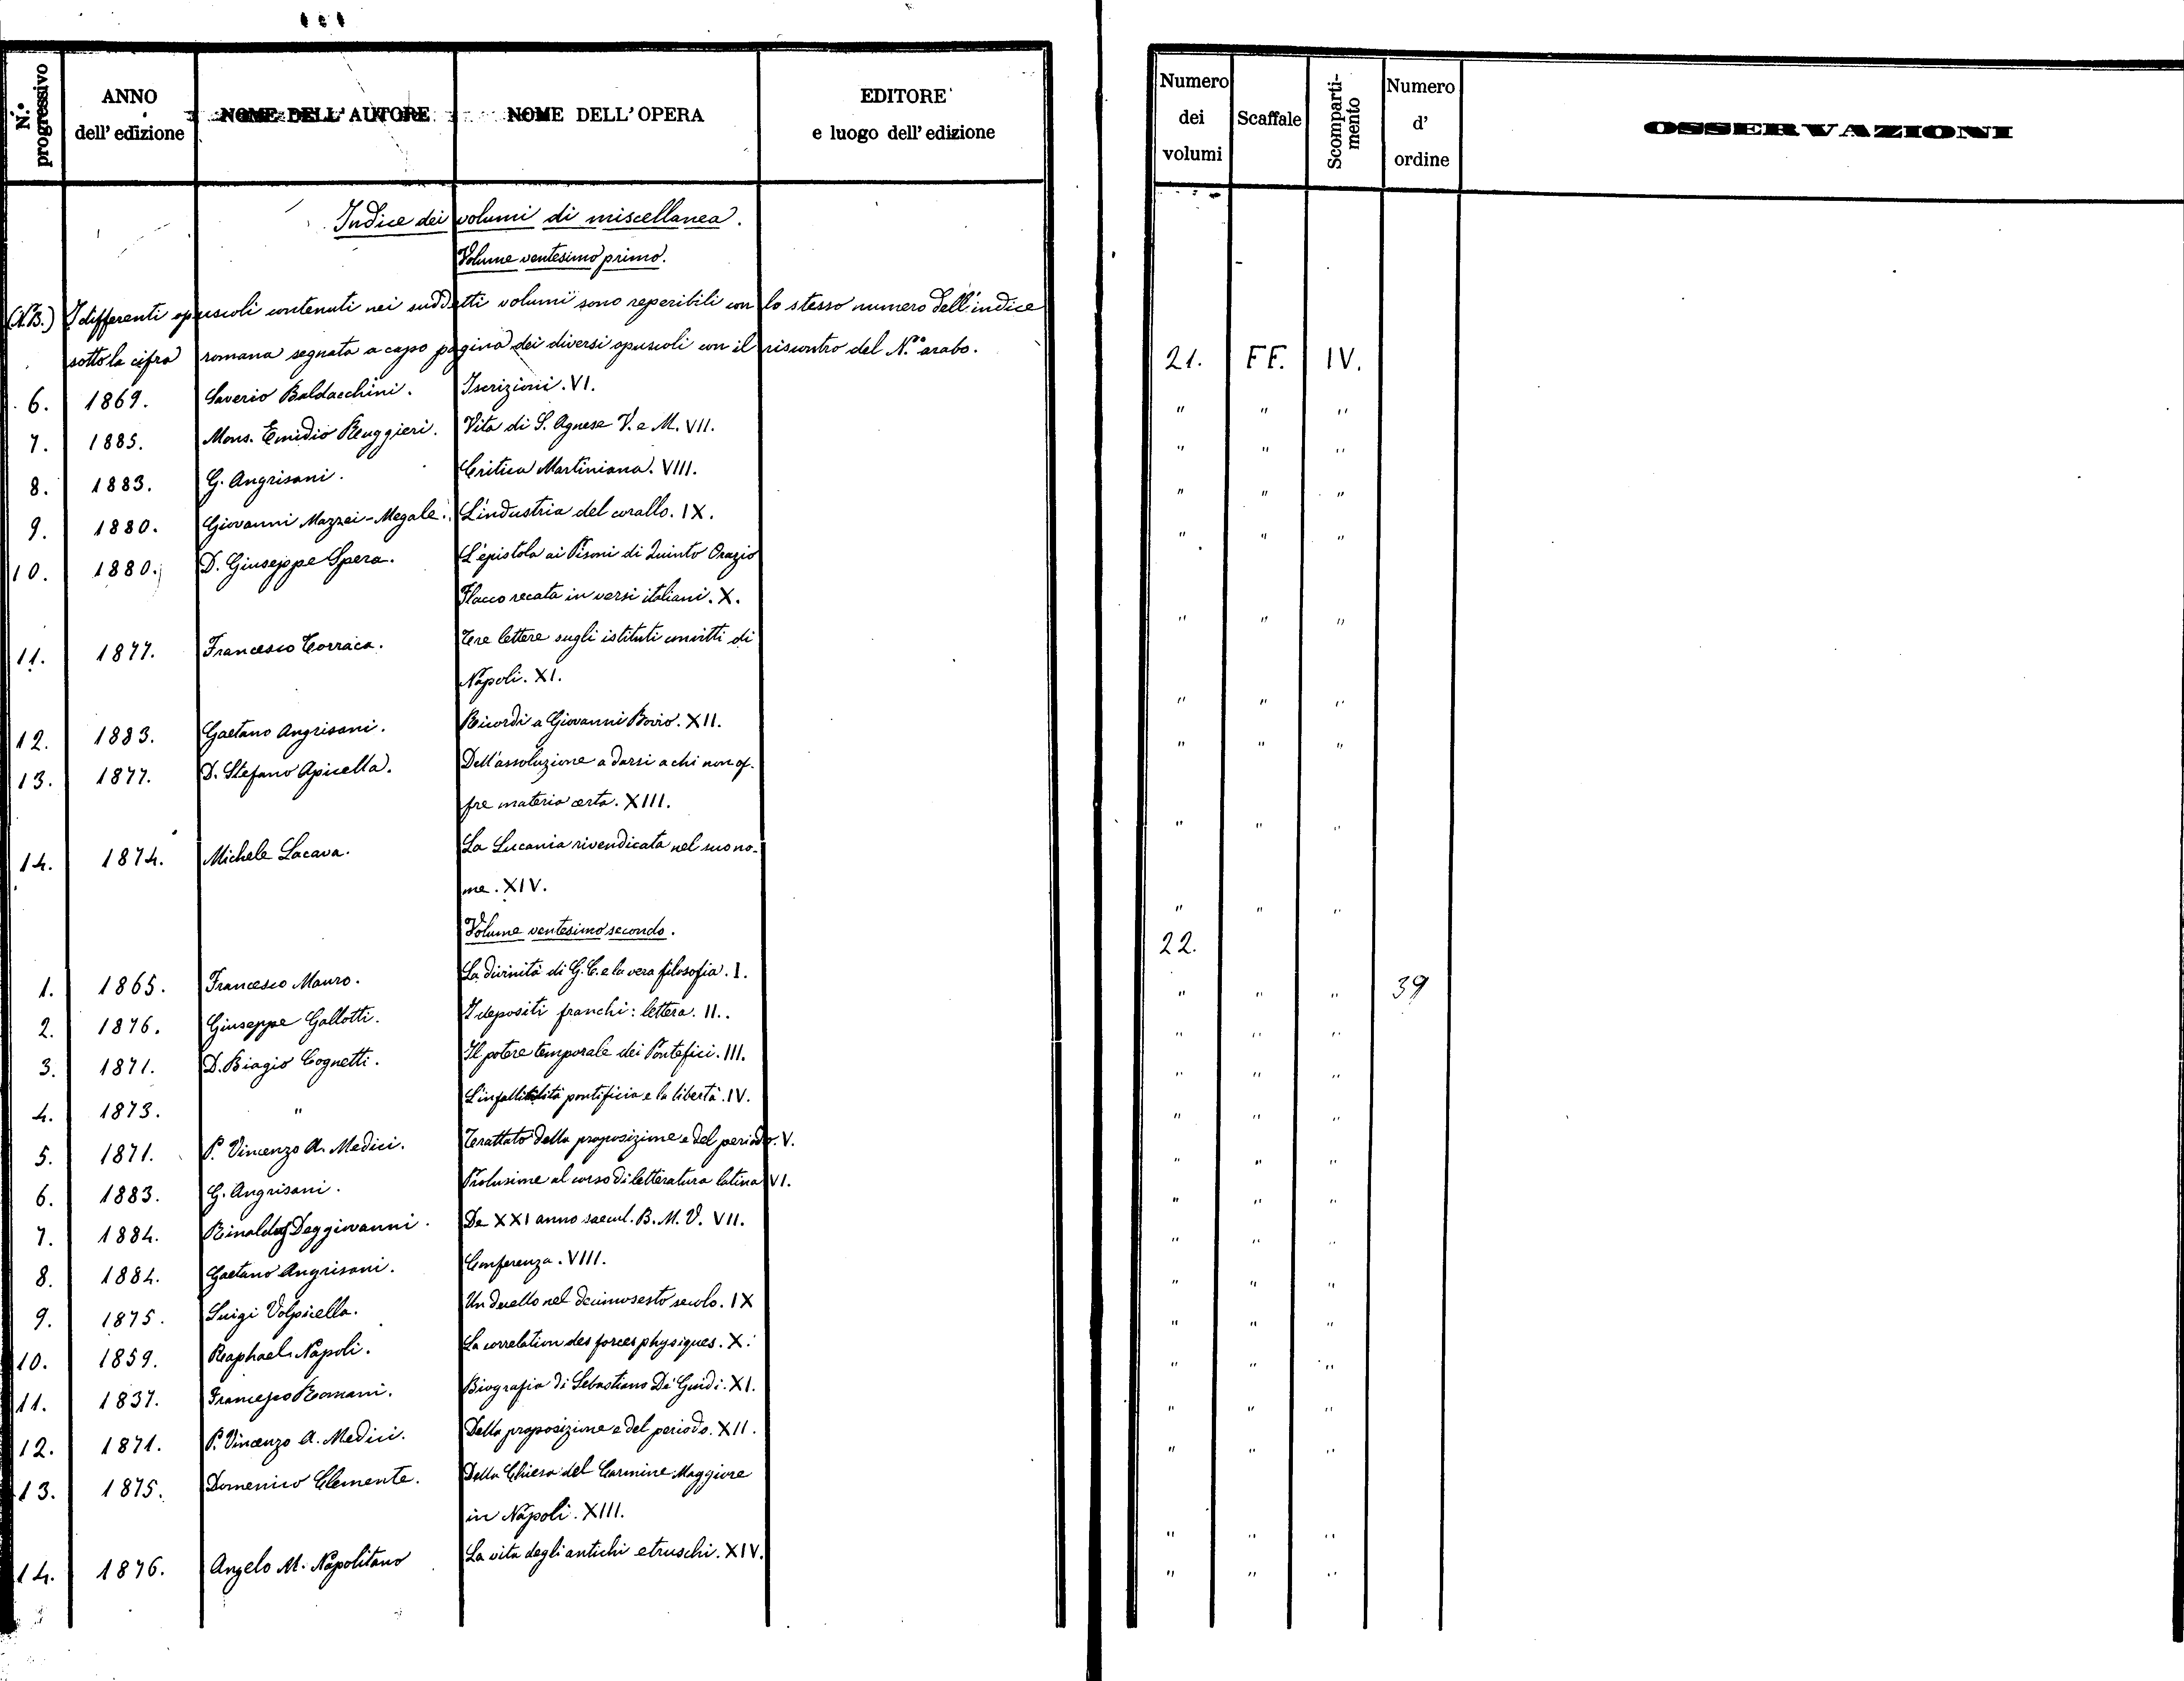 N.º progressivo
ANNO dell' edizione
NOME DELL' AUTORE
NOME DELL' OPERA
EDITORE e luogo dell' edizione
Numero dei volumi
Scaffale
Scomparti-mento
Numero d' ordine
OSSERVAZIONI
Indice dei volumi di miscellanea.
Volume ventesimo primo.
(N.B.) I differenti opuscoli contenuti nei suddetti volumi sono reperibili con lo stesso numero dell'indice
sotto la cifra romana segnata a capo pagina dei diversi opuscoli con il riscontro del N.º arabo. 21. FF. IV.
6. 1869. Saverio Baldacchini. Iscrizioni. VI. " " "
7. 1885. Mons. Emidio Ruggieri. Vita di S. Agnese V. e M. VII. " " "
8. 1883. G. Angrisani. Critica Martiniana. VIII. " " "
9. 1880. Giovanni Mazzei-Megale. L'industria del corallo. IX. " " "
10. 1880. D. Giuseppe Spera. L'epistola ai Pisoni di Quinto Orazio
Flacco recata in versi italiani. X. " " "
11. 1877. Francesco Torraca. Tre lettere sugli istituti convitti di
Napoli. XI. " " "
12. 1883. Gaetano Angrisani. Ricordi a Giovanni Bovio. XII. " " "
13. 1877. D. Stefano Apicella. Dell'assoluzione a darsi a chi non of-
fre materia certa. XIII. " " "
14. 1874. Michele Lacava. La Lucania rivendicata nel suo no-
me. XIV. " " "
Volume ventesimo secondo. 22.
1. 1865. Francesco Mauro. La divinità di G. C. e la vera filosofia. I. " " " 39
2. 1876. Giuseppe Gallotti. I depositi franchi: lettera. II. " " "
3. 1871. D. Biagio Cognetti. Il potere temporale dei Pontefici. III. " " "
4. 1873. " L'infallibilità pontificia e la libertà. IV. " " "
5. 1871. P. Vincenzo A. Medici. Trattato della proposizione e del periodo. V. " " "
6. 1883. G. Angrisani. Prolusione al corso di letteratura latina VI. " " "
7. 1884. Rinaldo Deggiovanni. De XXI anno saecul. B. M. V. VII. " " "
8. 1884. Gaetano Angrisani. Conferenza. VIII. " " "
9. 1875. Luigi Volpicella. Un duello nel decimosesto secolo. IX " " "
10. 1859. Raphael Napoli. La correlation des forces physiques. X. " " "
11. 1837. Francesco Romani. Biografia di Sebastiano De Guidi. XI. " " "
12. 1871. P. Vincenzo A. Medici. Della proposizione e del periodo. XII. " " "
13. 1875. Domenico Clemente. Della Chiesa del Carmine Maggiore
in Napoli. XIII. " " "
14. 1876. Angelo M. Napolitano La vita degli antichi etruschi. XIV. " " "